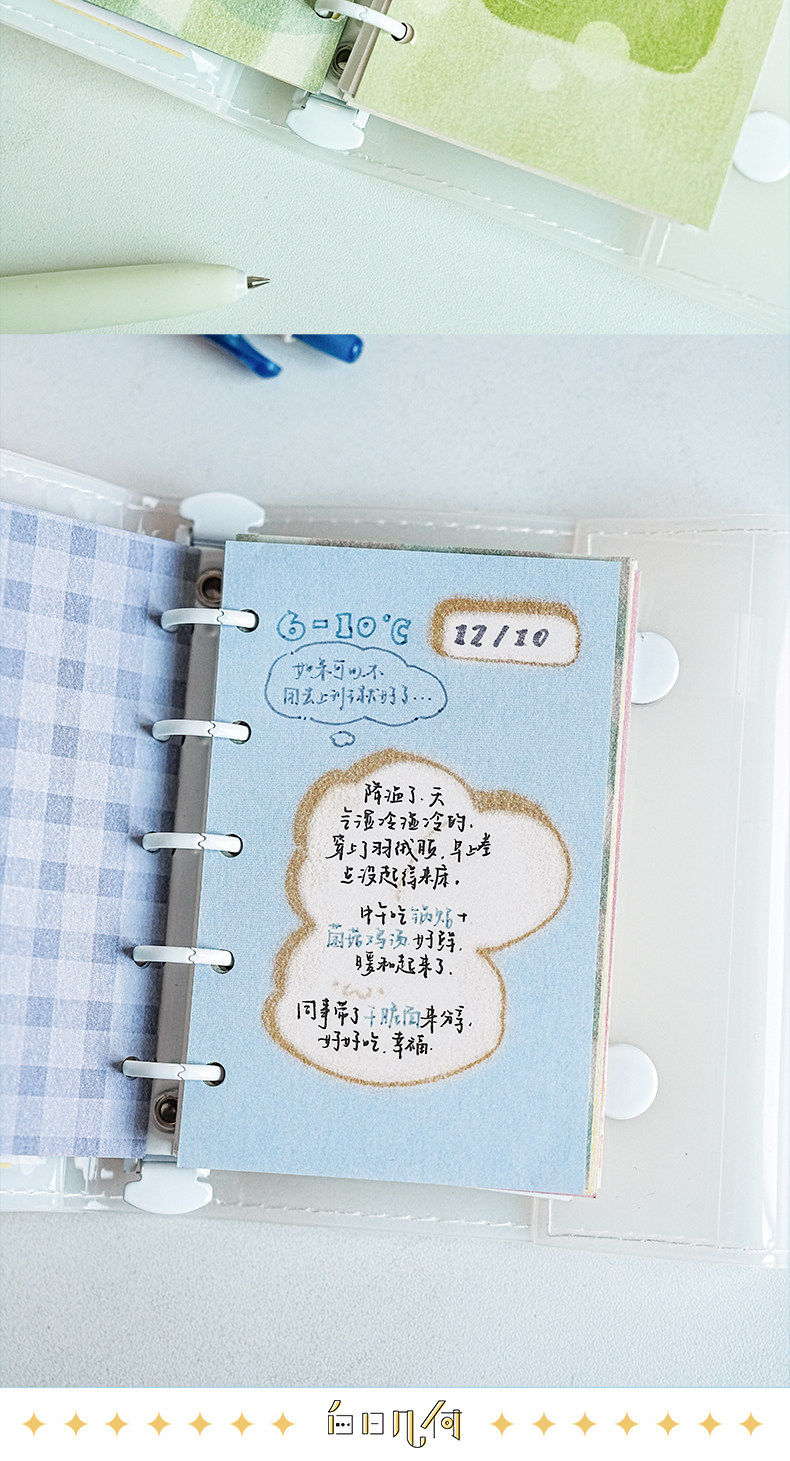 6-10℃
12/10
如果可以不
用去上列课就好了...
降温了.天
气湿冷湿冷的.
穿上了羽绒服.早上
点没起得来床.
中午吃锅贴+
菌菇鸡汤 好鲜.
暖和起来了.
同事带了干脆面来分享.
好好吃.幸福.
白日几何